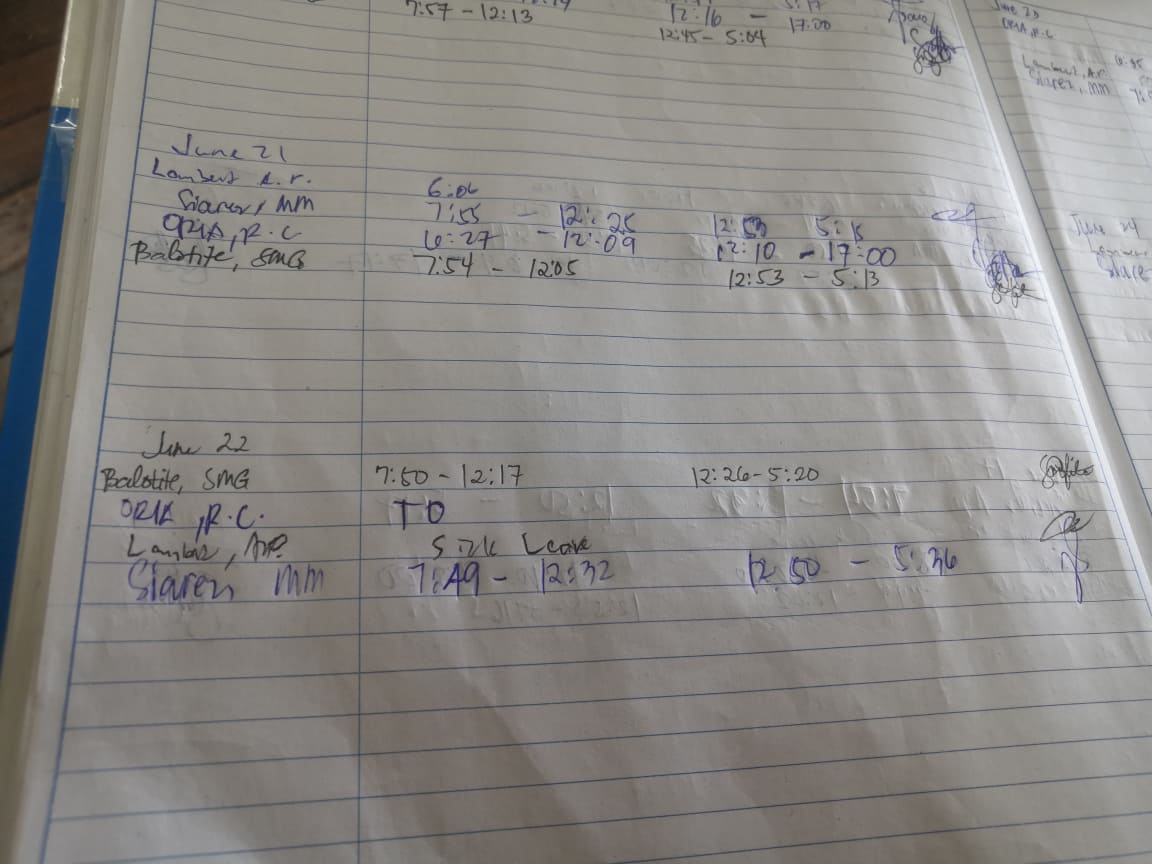 7:57 - 12:13
12:16 - 17:00
12:45 - 5:04
June 21
Lambert A.r.
6:06
Siarez, MM 7:55 - 12:25 12:53 5:15
ORIA, R.C 6:27 - 12:09 12:10 - 17:00
Balotite, SMG 7:54 - 12:05 12:53 - 5:13
June 22
Balotite, SMG 7:50 - 12:17 12:26 - 5:20
ORIA, R.C. TO
Lambert, A.r. Sick Leave
Siarez, MM 7:49 - 12:32 12:50 - 5:36
June 23
ORIA, R.C
Lambert, A.r.
Siarez, MM
June 24
Siare